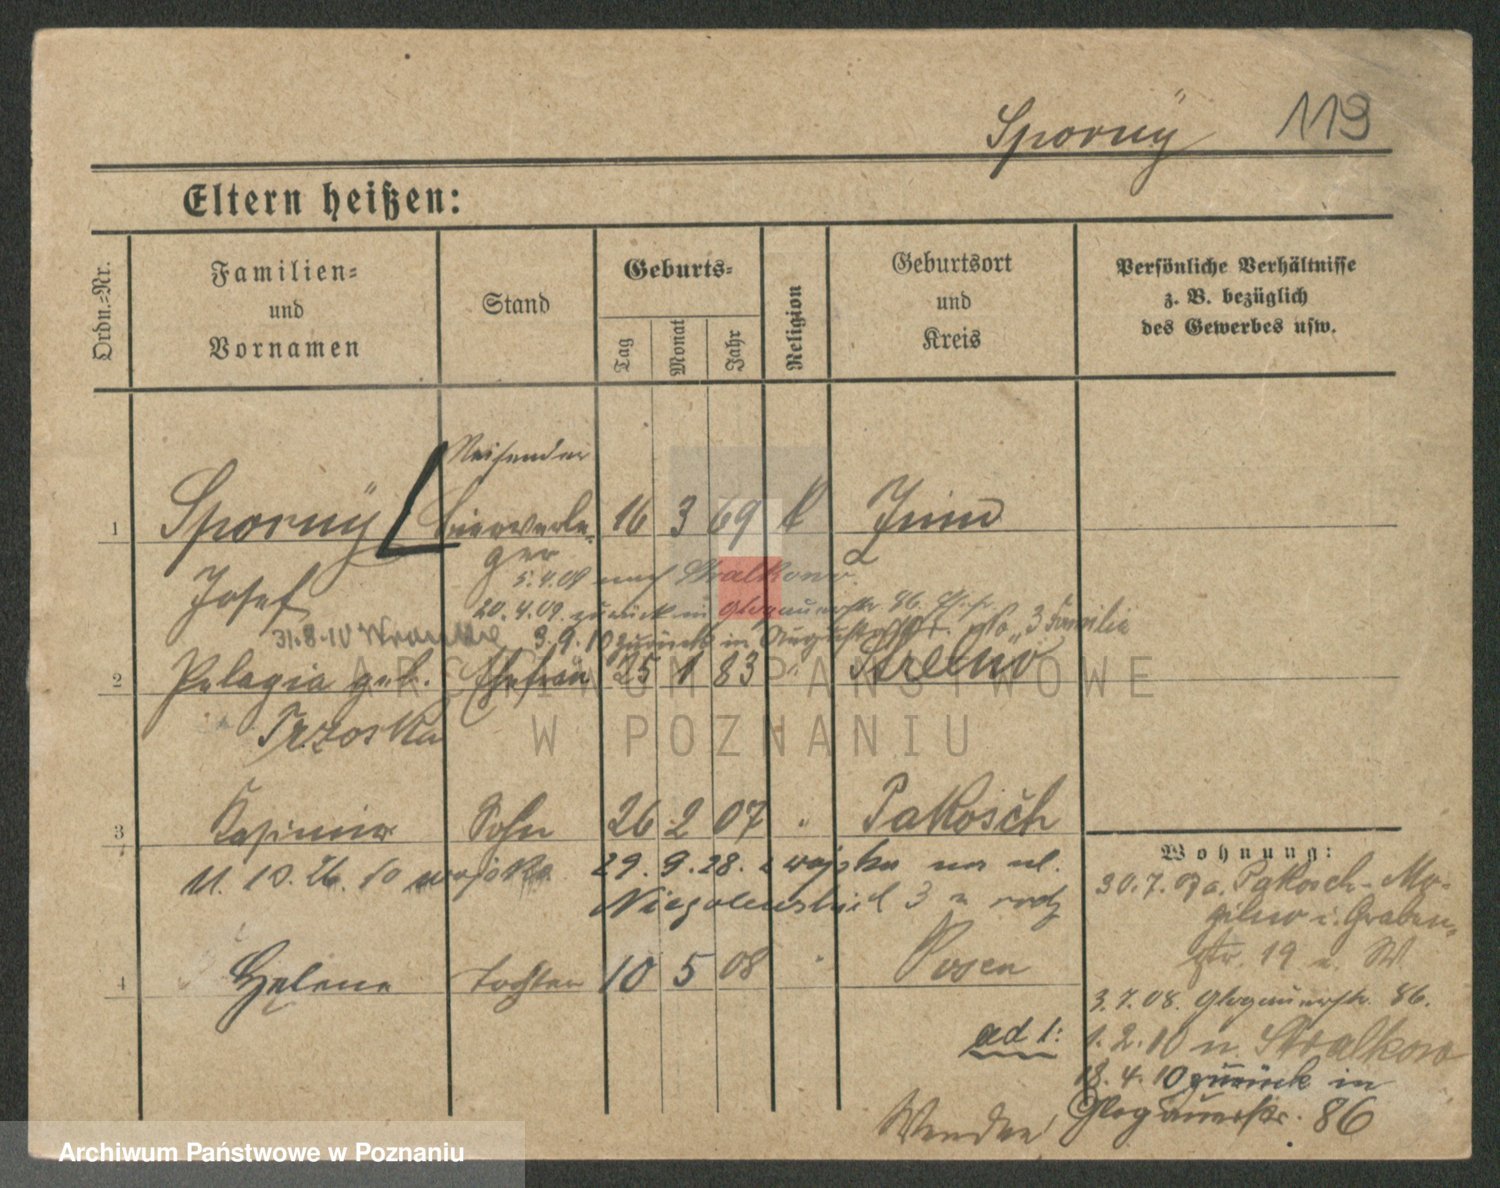 Sporny 113
Eltern heißen:
Ordn.=Nr.
Familien=
und
Vornamen
Stand
Geburts=
Tag
Monat
Jahr
Religion
Geburtsort
und
Kreis
Persönliche Verhältnisse
z. B. bezüglich
des Gewerbes usw.
Reisender
1 Sporny Bierverle= 16 3 69 k
ger
Josef 5.4.09 nach Stralkowo
20.4.09. zurück in Glogauerstr. 86.
31.8.10 Wronke 3.9.10 zurück in 3 Familie
2 Pelagia geb. Ehefrau 25 1 83 " Strelno
Trzoska
3 Kasimir Sohn 26 2 07 " Pakosch
11. 10. 26. do wojska 29.9.28. z wojska na ul.
Niegolewskich 3 u rodz
4 Helene Tochter 10 5 08 " Posen
Wohnung:
30.7.07 a. Pakosch-Mo=
gilno i. Graben=
str. 19 u. W.
3.7.08. Glogauerstr. 86.
ad 1: 1.2.10 n. Stralkowo
18.4.10 zurück in
Glogauerstr. 86
Wenden
ARCHIWUM PAŃSTWOWE
W POZNANIU
Archiwum Państwowe w Poznaniu